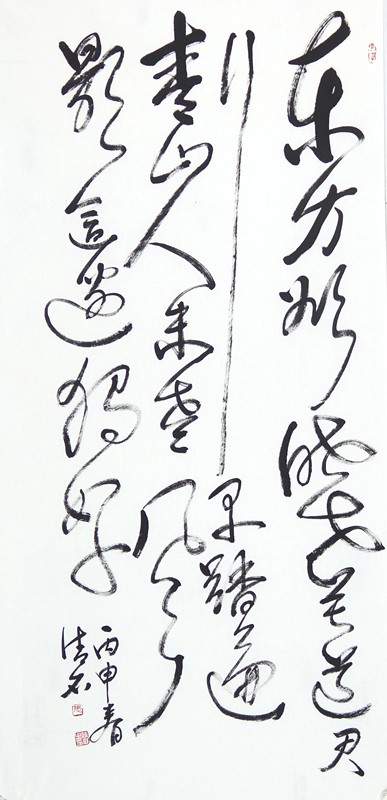 东方欲晓莫道君
行早踏遍
青山人未老风
景這邊獨好
丙申春